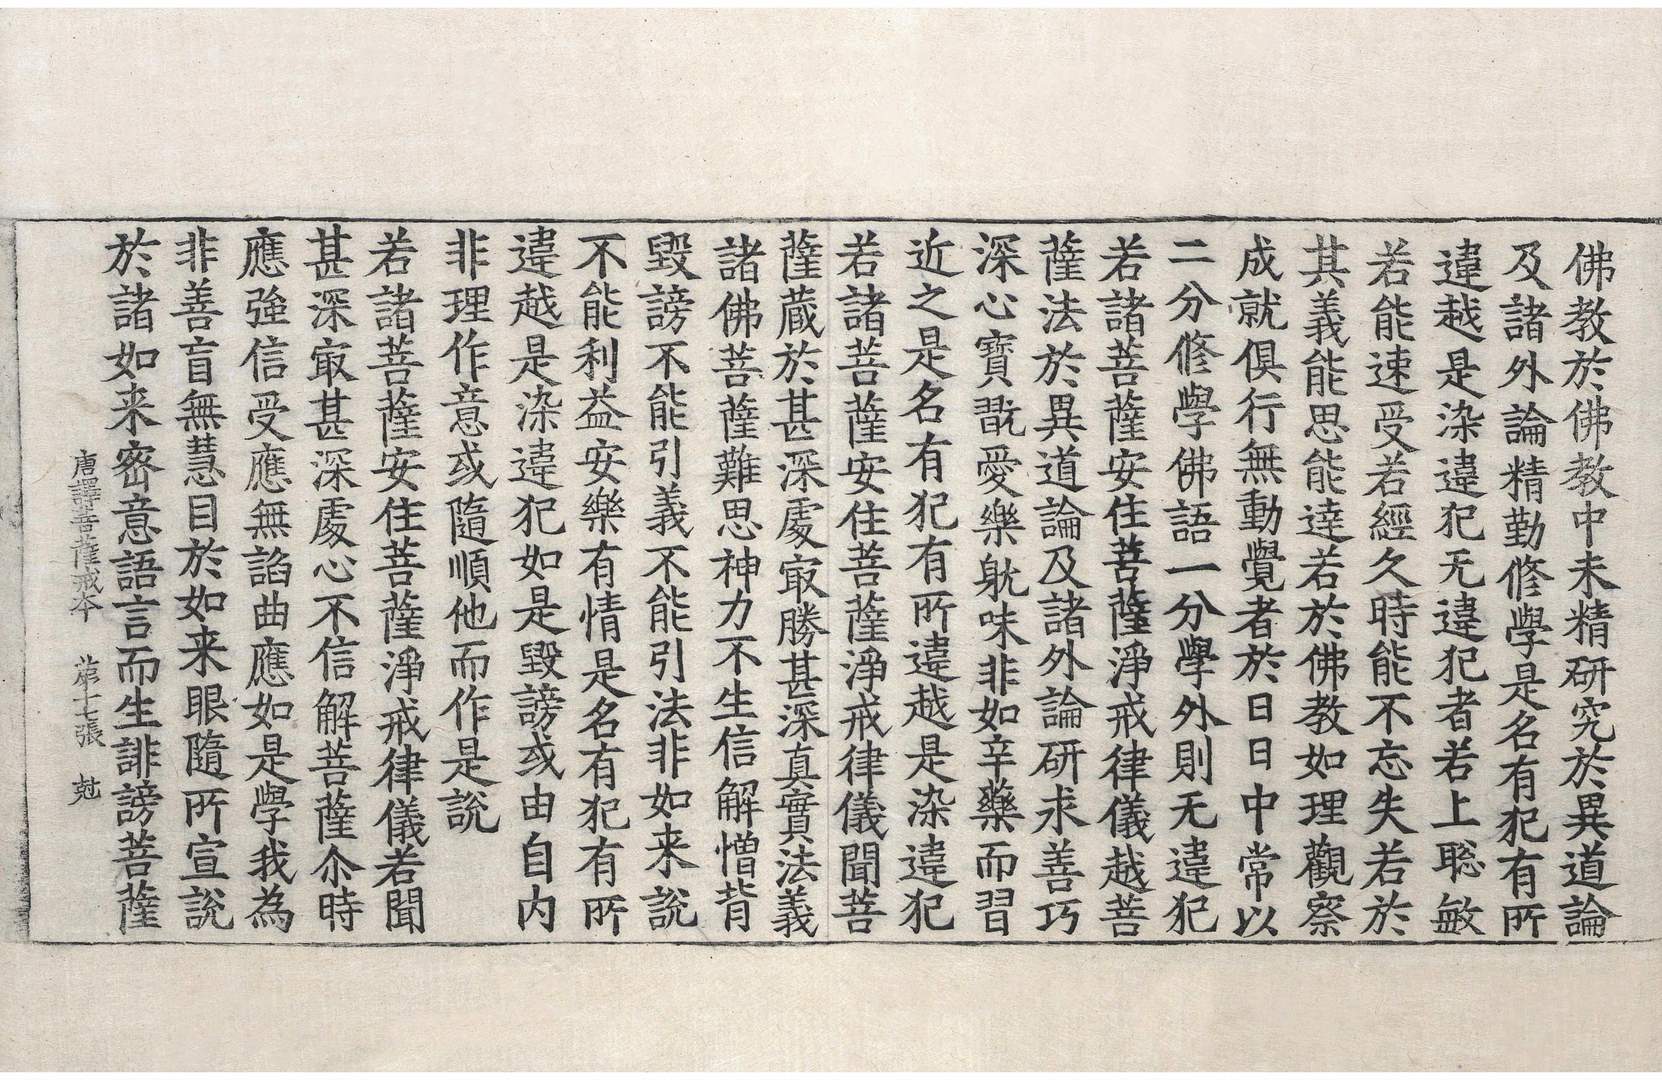 佛教於佛教中未精研究於異道論
及諸外論精勤修學是名有犯有所
違越是染違犯无違犯者若上聡敏
若能速受若經久時能不忘失若於
其義能思能達若於佛教如理觀察
成就俱行無動覺者於日日中常以
二分修學佛語一分學外則无違犯
若諸菩薩安住菩薩淨戒律儀越菩
薩法於異道論及諸外論研求善巧
深心寶翫愛樂躭味非如辛藥而習
近之是名有犯有所違越是染違犯
若諸菩薩安住菩薩淨戒律儀聞菩
薩蔵於甚深處㝡勝甚深真實法義
諸佛菩薩難思神力不生信解憎背
毀謗不能引義不能引法非如来說
不能利益安樂有情是名有犯有所
違越是染違犯如是毀謗或由自内
非理作意或隨順他而作是說
若諸菩薩安住菩薩淨戒律儀若聞
甚深㝡甚深處心不信解菩薩尒時
應強信受應無諂曲應如是學我為
非善盲無慧目於如来眼隨所宣說
於諸如来密意語言而生誹謗菩薩
唐譯菩薩戒本 苐十七張 尅